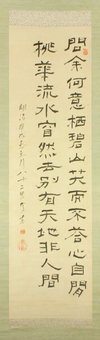 問余何意栖碧山笑而不答心自閒
桃華流水窅然去別有天地非人間